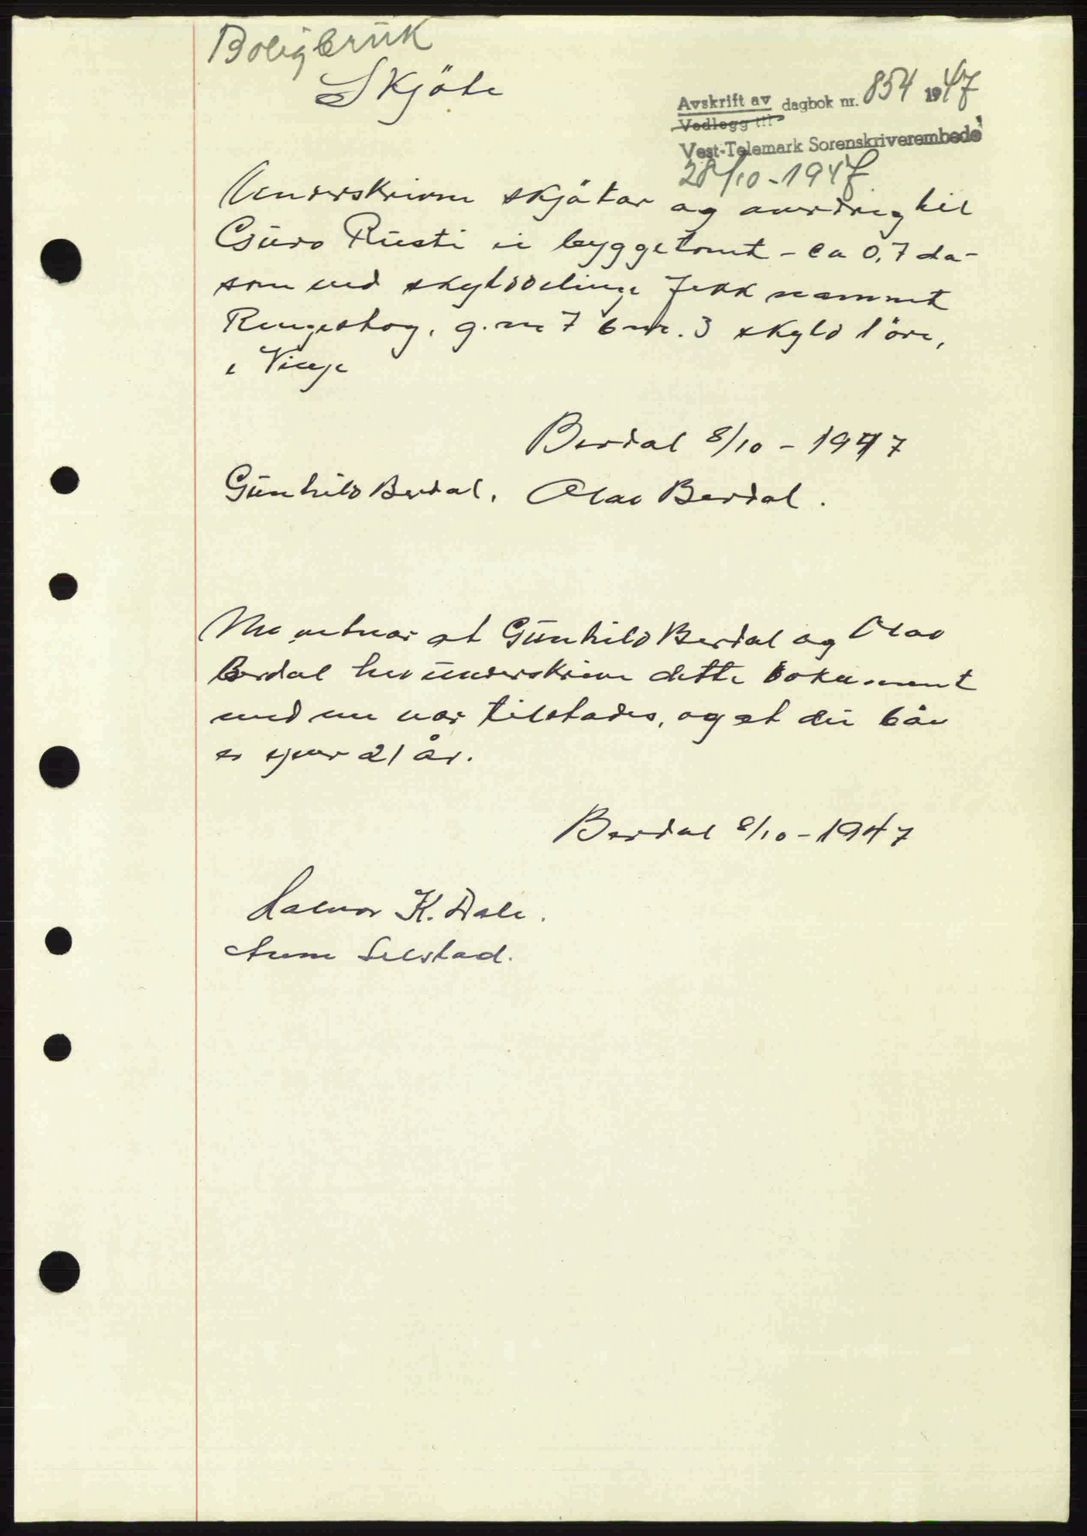 Boligbruk
Skjöte
Avskrift av dagbok nr. 854 1947
Vedlegg til
Vest-Telemark Sorenskriverembede
28/10-1947
Underskrivne skjötar og avertig til
Guro Rusti ei byggetomt - ca 0,7 da -
som ved skylddeling fekk namnet
g.nr 7 b.nr. 3 skyld 1 öre,
i Vinje
Berdal 8/10 - 1947
Gunhild Berdal. Olav Berdal.
Me vitnar at Gunhild Berdal og Olav
Berdal hev underskrive dette dokument
med me var tilstades, og at dei båe
er yver 21 år.
Berdal 8/10 - 1947
Halvor K. Dale.
Selstad.